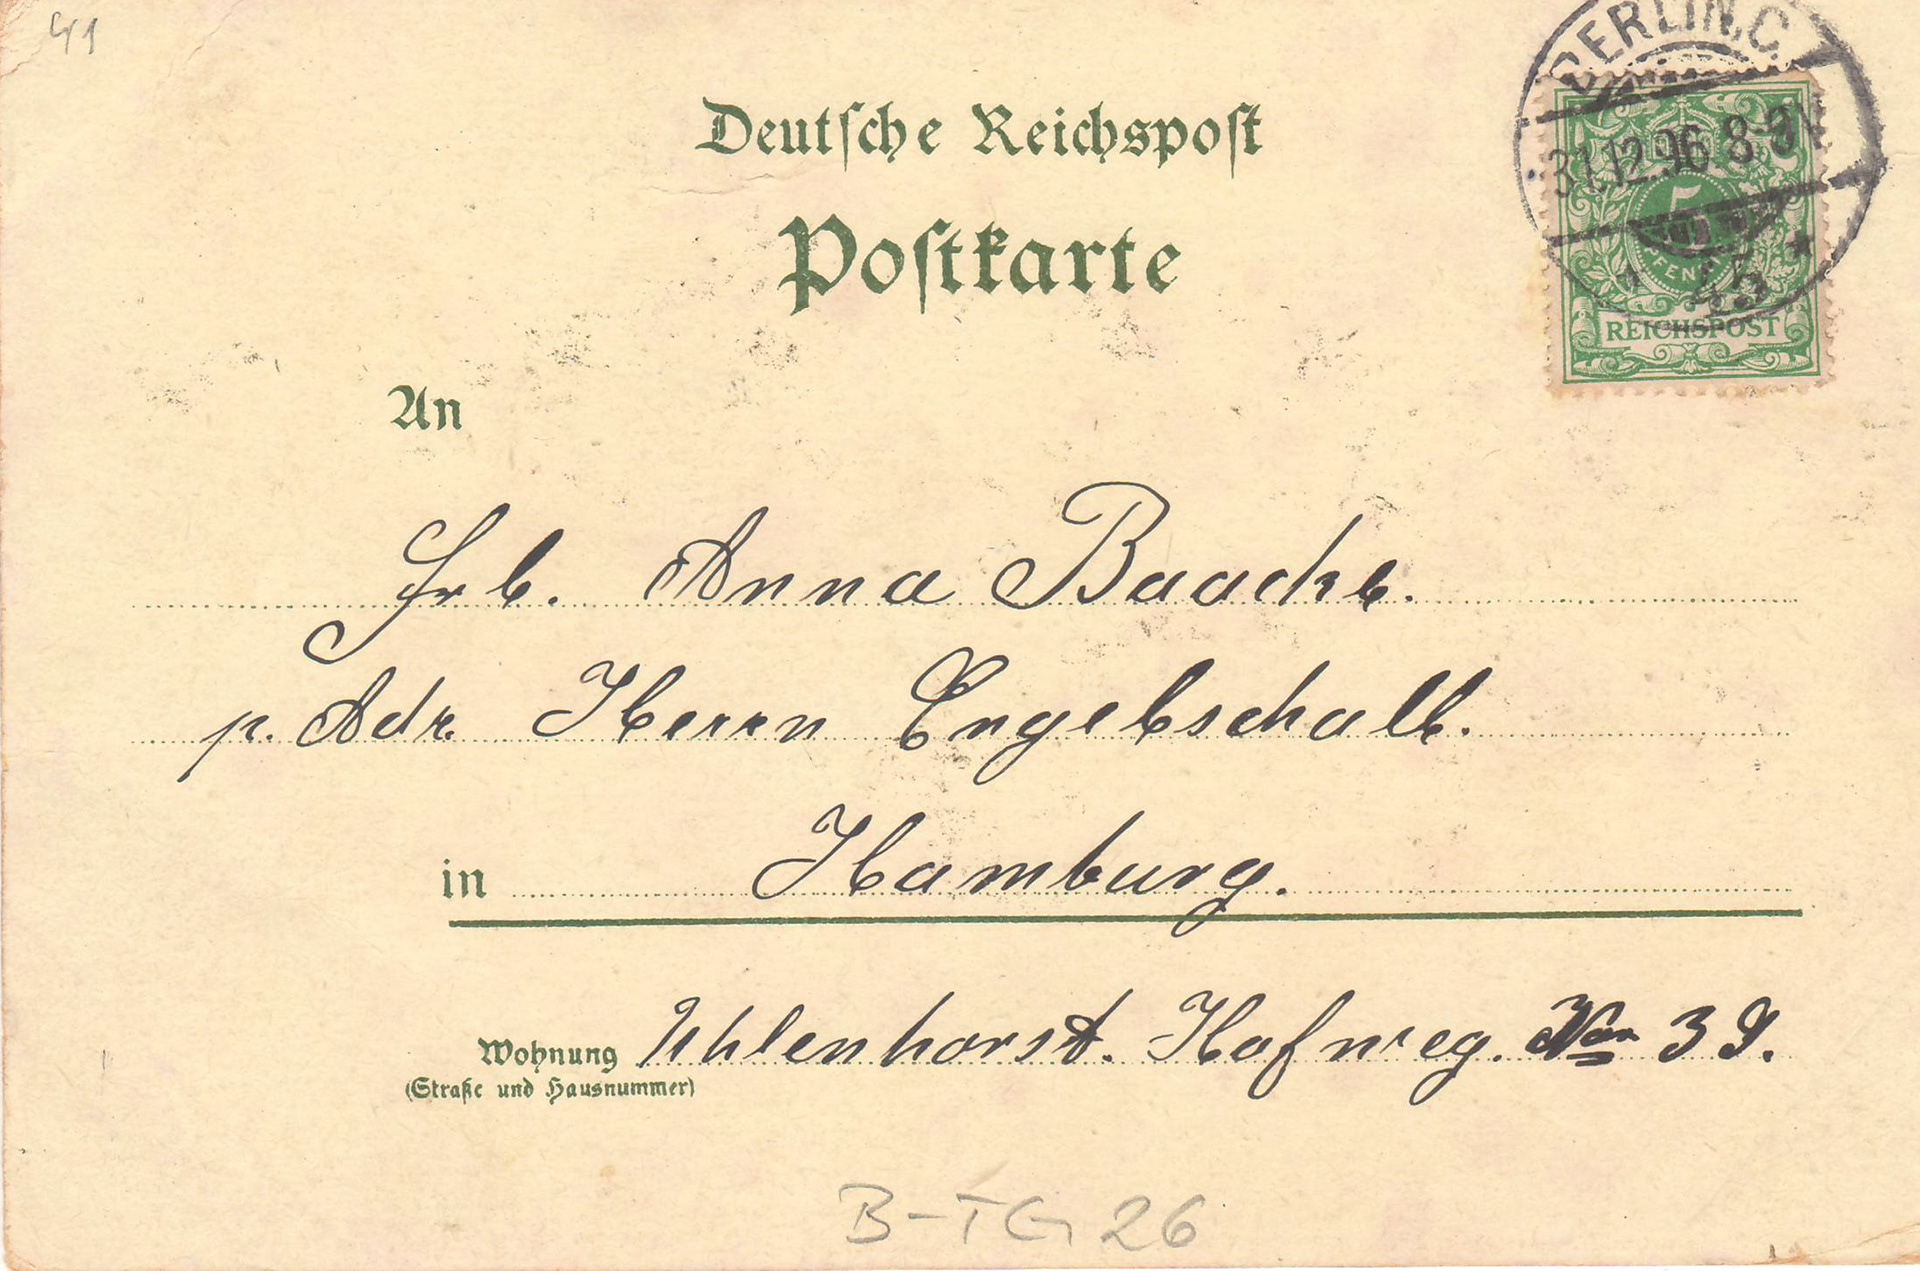 41
BERLIN, C.
31.12.96 8-9N
5
PFENNIG
REICHSPOST
Deutsche Reichspost
Postkarte
An
Frl. Anna Baacke.
p. Adr. Herrn Engelschall.
in Hamburg.
Wohnung Uhlenhorst. Hofweg. No 39.
(Straße und Hausnummer)
B-TG 26